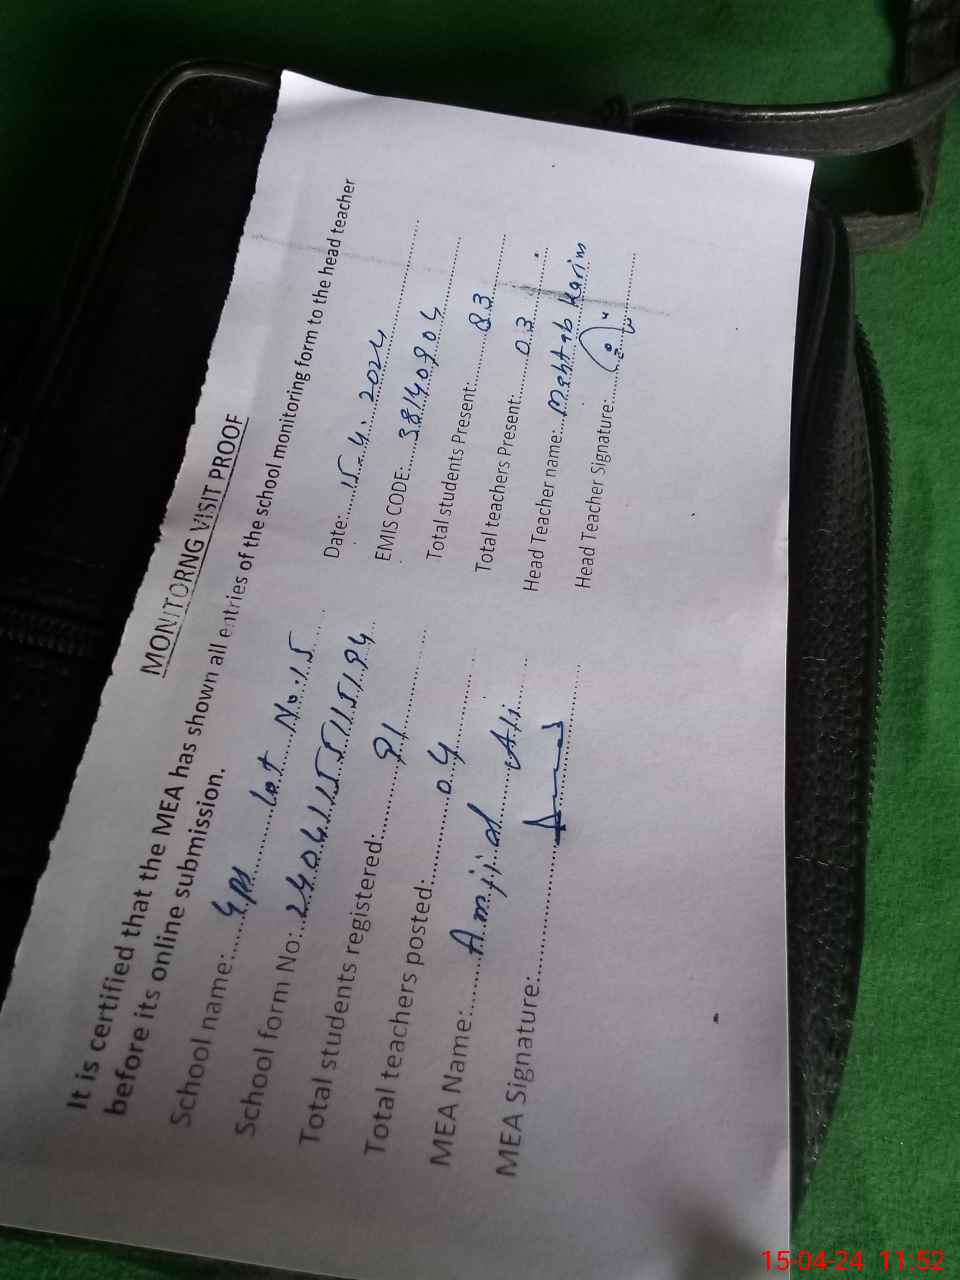 MONITORNG VISIT PROOF
It is certified that the MEA has shown all entries of the school monitoring form to the head teacher
before its online submission.
School name: GPS Lot No. 15 Date: 15.4.2024
School form No: EMIS CODE: 38140904
Total students registered: 91 Total students Present: 83
Total teachers posted: 04 Total teachers Present: 03
MEA Name: Amjid Ali Head Teacher name: Mahtab Karim
MEA Signature: Head Teacher Signature:
15-04-24 11:52